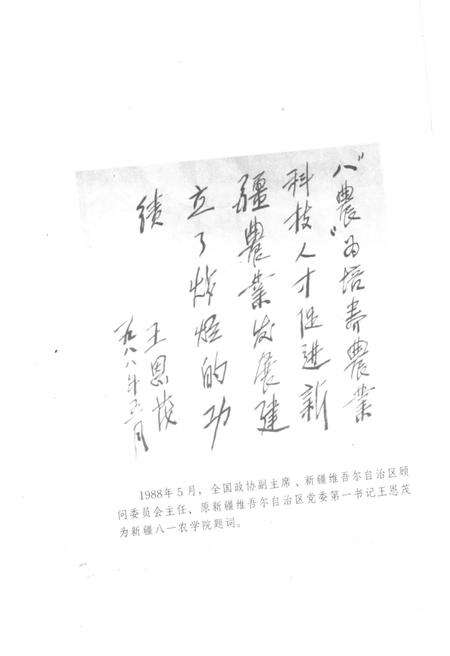 八“農”为培养農業
科技人才促进新
疆農業发展建
立了辉煌的功
績
王恩茂
一九八八年五月
1988年5月，全国政协副主席、新疆维吾尔自治区顾
问委员会主任，原新疆维吾尔自治区党委第一书记王恩茂
为新疆八一农学院题词。